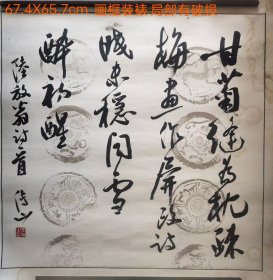 67.4X65.7cm 画框装裱 局部有破损
甘菊縫为枕疎
梅画作屏改诗
眠未穩闻雪
醉初醒
陸放翁诗一首